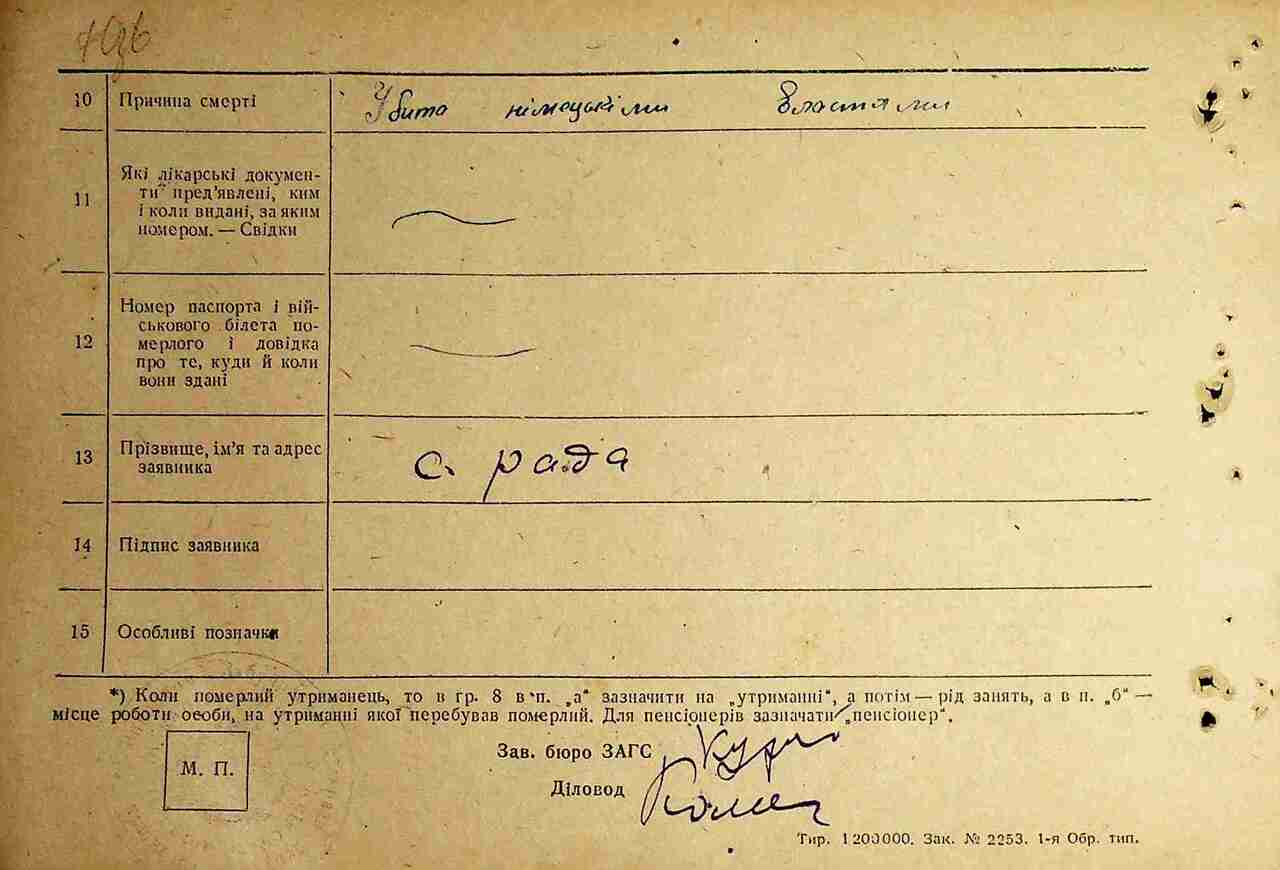 10 Причина смерті Убито німецькіми властями
11 Які лікарські докумен-
ти пред’явлені, ким
і коли видані, за яким
номером. — Свідки
12 Номер паспорта і вій-
ськового білета по-
мерлого і довідка
про те, куди й коли
вони здані
13 Прізвище, ім’я та адрес
заявника
с. рада
14 Підпис заявника
15 Особливі позначки
*) Коли померлий утриманець, то в гр. 8 в п. „а“ зазначити на „утриманні“, а потім — рід занять, а в п. „б“ —
місце роботи особи, на утриманні якої перебував померлий. Для пенсіонерів зазначати „пенсіонер“.
Зав. бюро ЗАГС
М. П.
Діловод
Тир. 1200000. Зак. № 2253. 1-я Обр. тип.